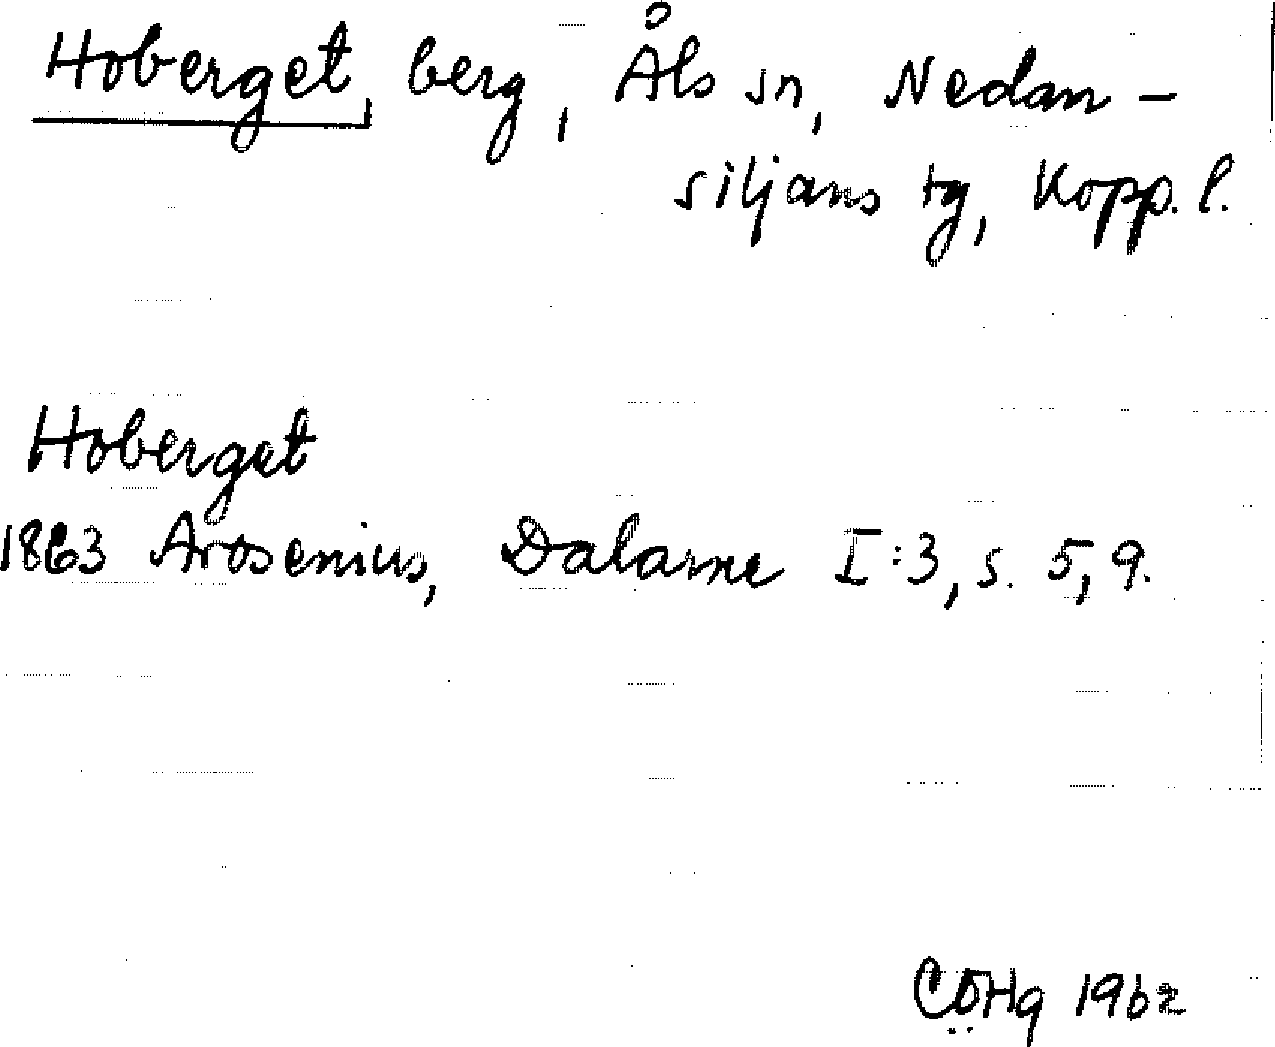 Hoberget, berg, Åls sn, Nedan-
siljans tg, Kopp. l.
Hoberget
1863 Arosenius, Dalarne I:3, s. 5, 9.
CÖHg 1962